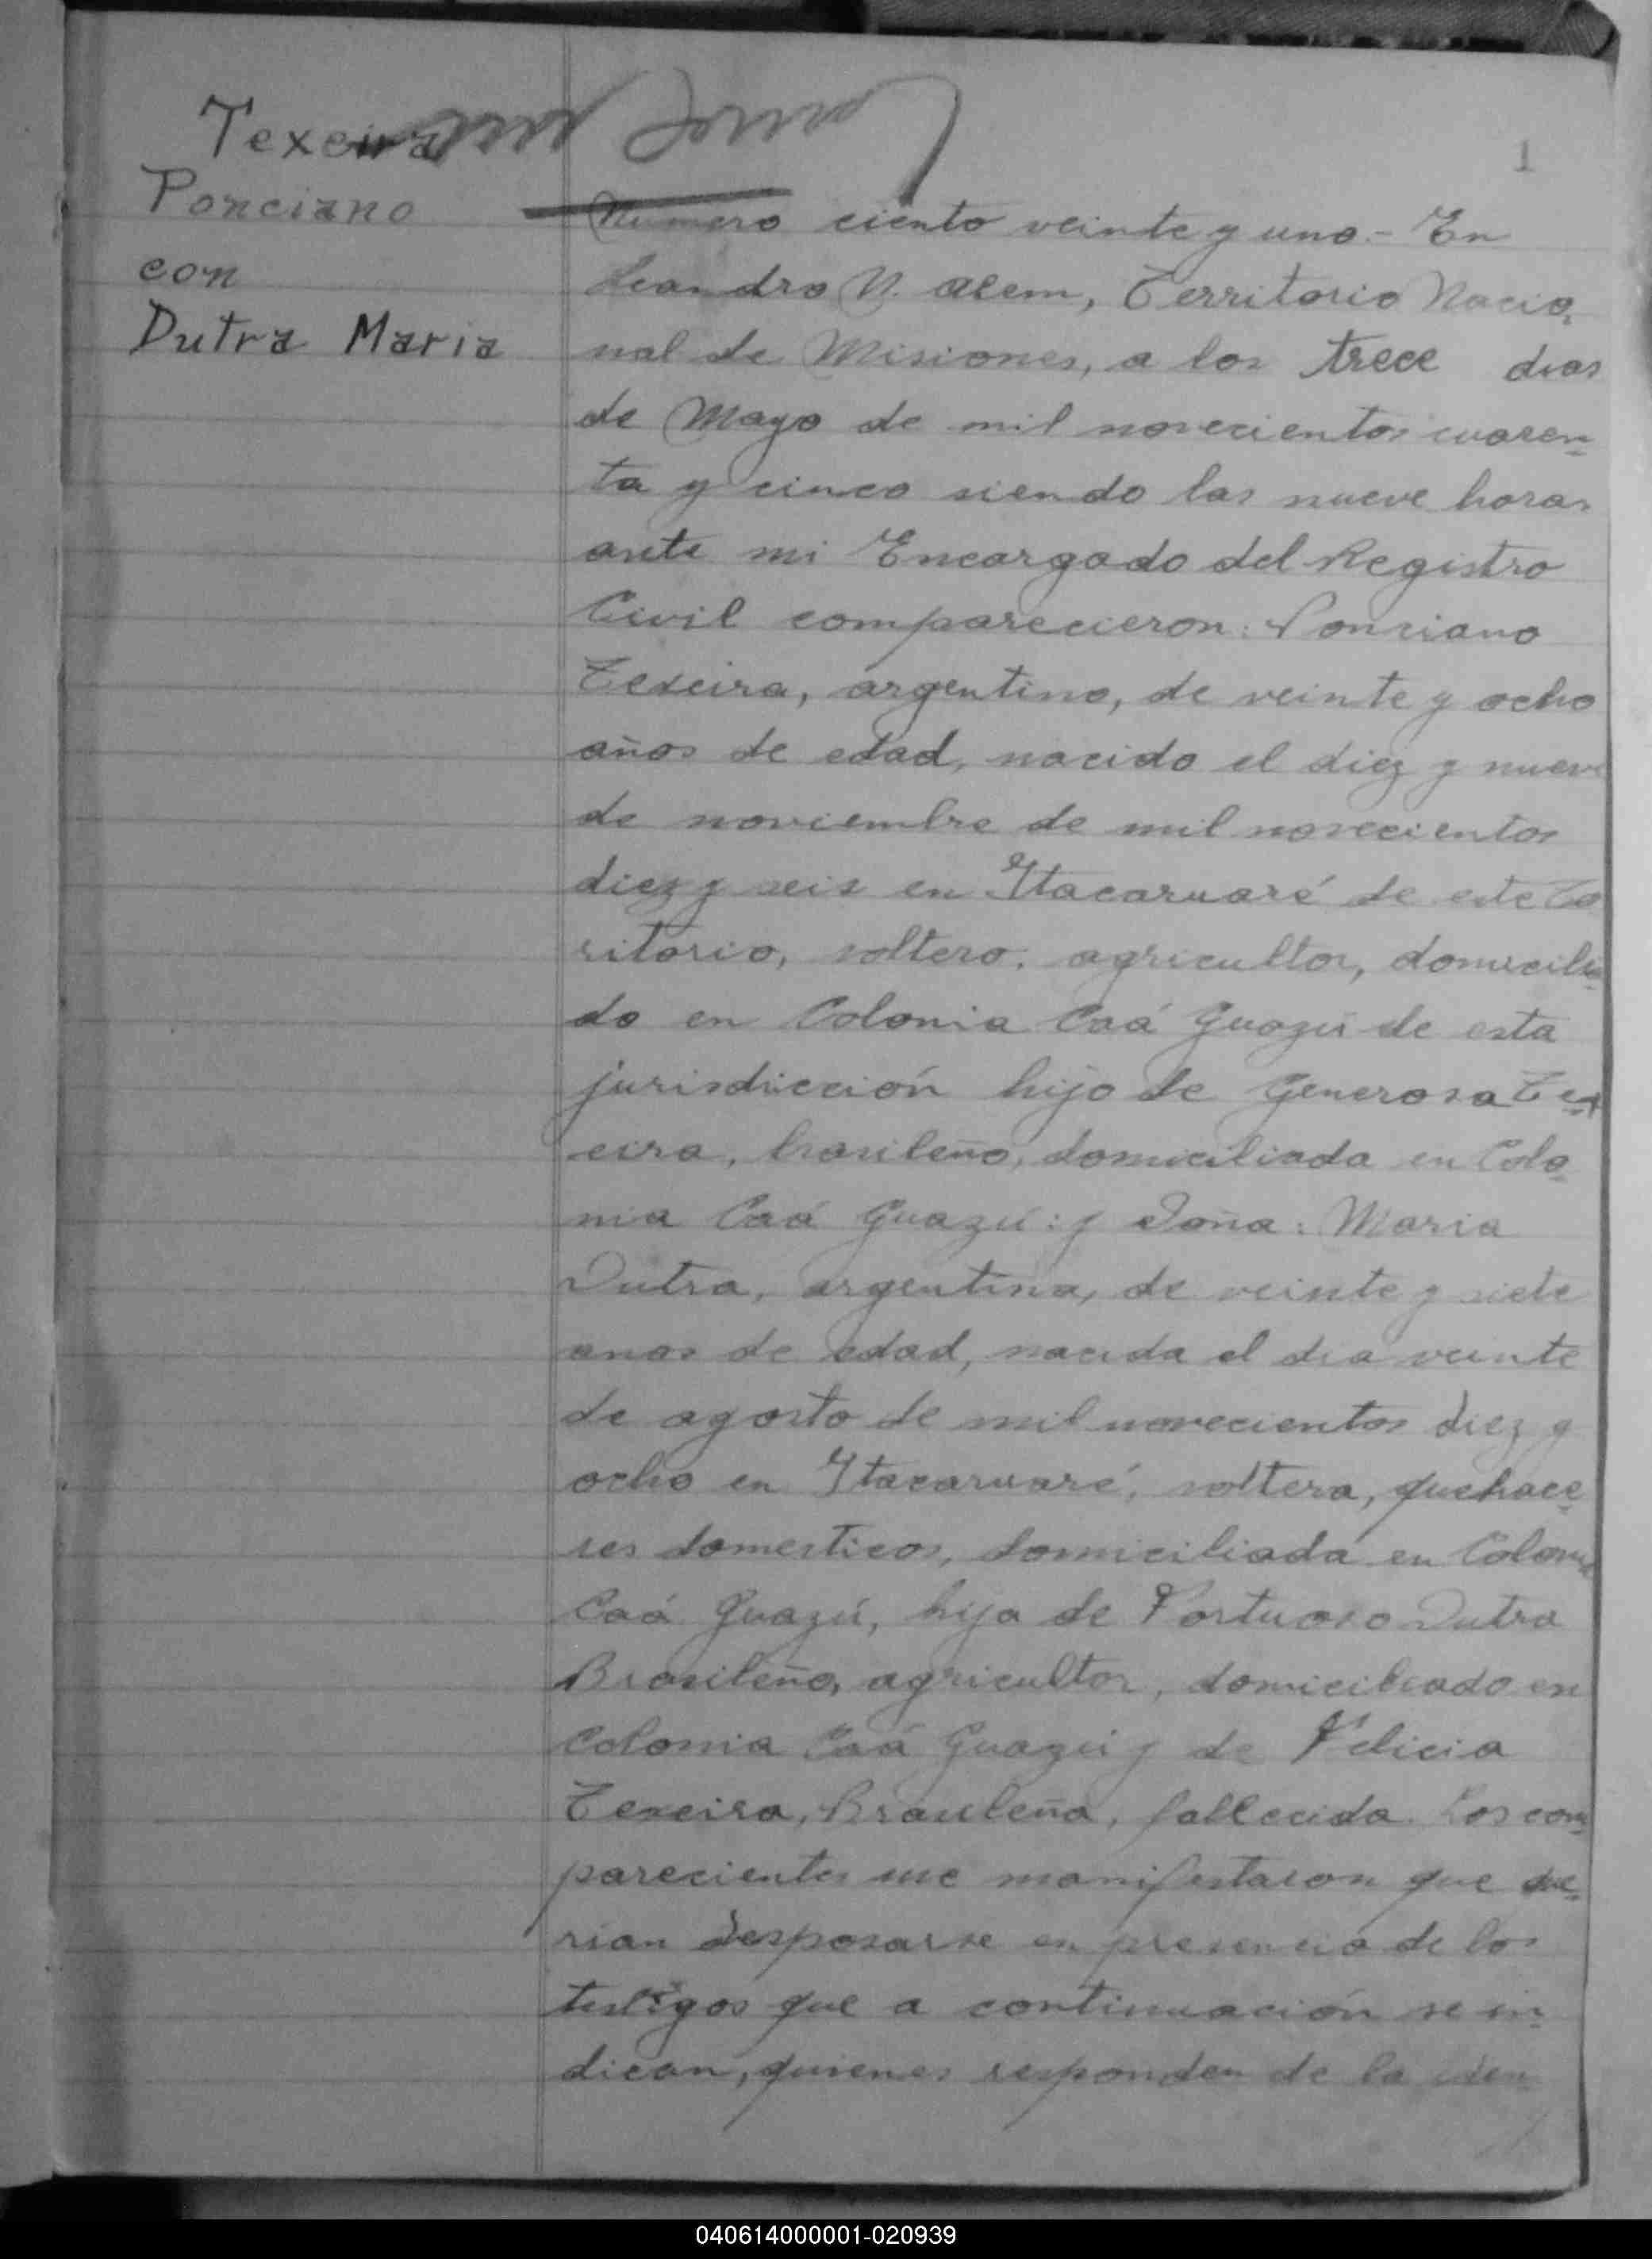 Texeira
Ponciano
con
Dutra Maria
1
Numero ciento veinte y uno.- En
Leandro N. Alem, Territorio Nacio-
nal de Misiones, a los trece dias
de Mayo de mil novecientos cuaren-
ta y cinco siendo las nueve horas
ante mi Encargado del Registro
Civil comparecieron: Ponciano
Texeira, argentino, de veinte y ocho
años de edad, nacido el diez y nueve
de noviembre de mil novecientos
diez y seis en Itacaruaré de este Te
ritorio, soltero, agricultor, domicilia-
do en Colonia Caá Guazú de esta
jurisdicción hijo de Generosa Tex-
eira, brasileño, domiciliada en Colo-
nia Caá Guazú: y Doña: Maria
Dutra, argentina, de veinte y siete
anos de edad, nacida el dia veinte
de agosto de mil novecientos diez y
ocho en Itacaruaré, soltera, quehace-
res domesticos, domiciliada en Colonia
Caá Guazú, hija de Fortuoso Dutra
Brasileño, agricultor, domiciliado en
Colonia Caá Guazú y de Felicia
Texeira, Brasileña, fallecida. Los com-
parecientes me manifestaron que que-
rian desposarse en presencia de los
testigos que a continuación se in-
dican, quienes responden de la iden-
040614000001-020939